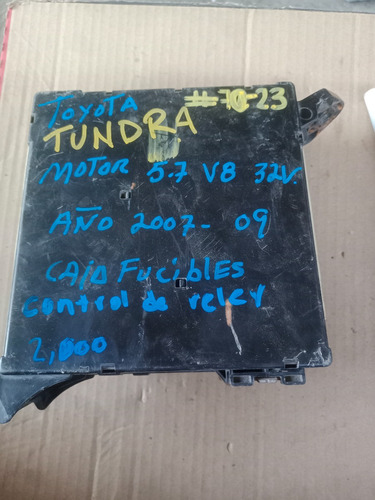 TOYOTA #70-23
TUNDRA
MOTOR 5.7 V8 32V.
AÑO 2007- 09
CAJA FUCIBLES
control de reley
2,000